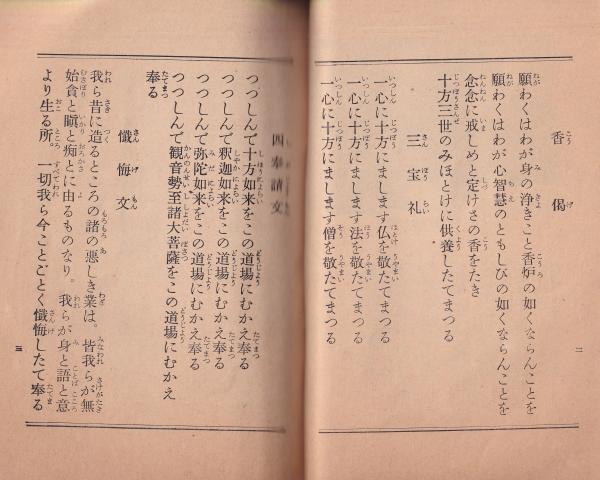 香偈
願わくはわが身の浄きこと香炉の如くならんことを
願わくはわが心智慧のともしびの如くならんことを
念念に戒しめと定けさの香をたき
十方三世のみほとけに供養したてまつる
三宝礼
一心に十方にまします仏を敬たてまつる
一心に十方にまします法を敬たてまつる
一心に十方にまします僧を敬たてまつる
二
四奉請文
つつしんで十方如来をこの道場にむかえ奉る
つつしんで釈迦如来をこの道場にむかえ奉る
つつしんで弥陀如来をこの道場にむかえ奉る
つつしんで観音勢至諸大菩薩をこの道場にむかえ
奉る
懺悔文
我ら昔に造るところの諸の悪しき業は。皆我らが無
始貪と瞋と痴とに由るものなり。我らが身と語と意
より生る所。一切我ら今ことごとく懺悔したて奉る
三